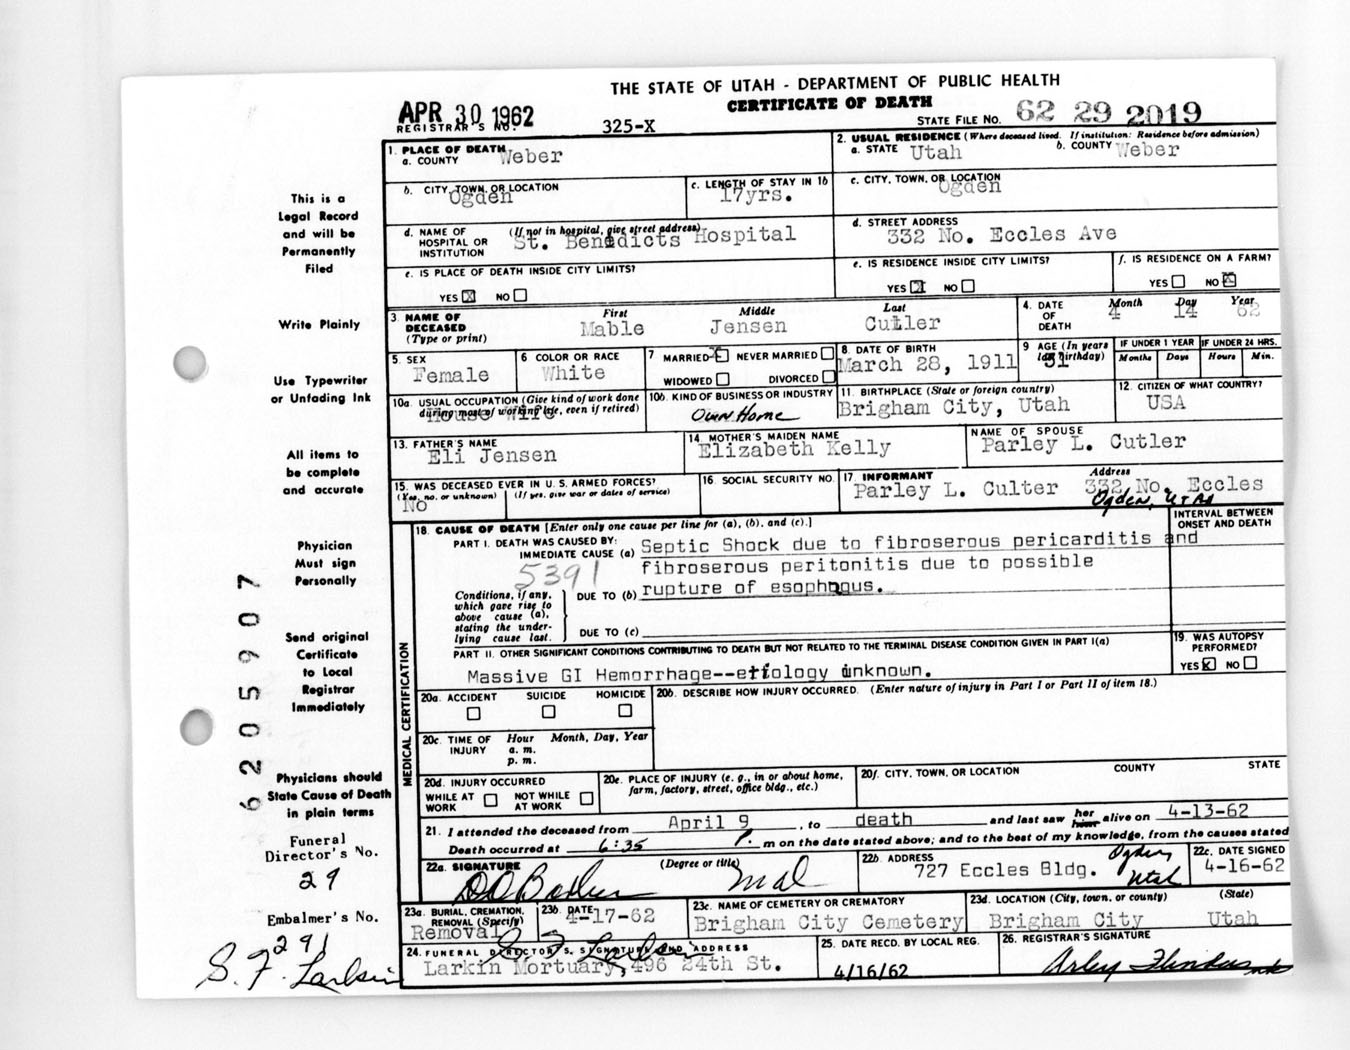 THE STATE OF UTAH - DEPARTMENT OF PUBLIC HEALTH
CERTIFICATE OF DEATH
APR 30 1962
REGISTRAR'S NO. 325-X
STATE FILE NO. 62 29 2019
1. PLACE OF DEATH
a. COUNTY Weber
2. USUAL RESIDENCE (Where deceased lived. If institution: Residence before admission)
a. STATE Utah b. COUNTY Weber
b. CITY, TOWN, OR LOCATION
Ogden
c. LENGTH OF STAY IN 1b
17yrs.
c. CITY, TOWN, OR LOCATION
Ogden
d. NAME OF HOSPITAL OR INSTITUTION (If not in hospital, give street address)
St. Benedicts Hospital
d. STREET ADDRESS
332 No. Eccles Ave
e. IS PLACE OF DEATH INSIDE CITY LIMITS?
YES X NO
e. IS RESIDENCE INSIDE CITY LIMITS?
YES X NO
f. IS RESIDENCE ON A FARM?
YES NO X
3. NAME OF DECEASED (Type or print)
First Middle Last
Mable Jensen Cutler
4. DATE OF DEATH
Month Day Year
4 14 62
5. SEX
Female
6 COLOR OR RACE
White
7 MARRIED X NEVER MARRIED
WIDOWED DIVORCED
8. DATE OF BIRTH
March 28, 1911
9 AGE (In years last birthday)
51
IF UNDER 1 YEAR
Months Days
IF UNDER 24 HRS.
Hours Min.
10a. USUAL OCCUPATION (Give kind of work done during most of working life, even if retired)
House Wife
10b. KIND OF BUSINESS OR INDUSTRY
Own Home
11. BIRTHPLACE (State or foreign country)
Brigham City, Utah
12. CITIZEN OF WHAT COUNTRY?
USA
13. FATHER'S NAME
Eli Jensen
14. MOTHER'S MAIDEN NAME
Elizabeth Kelly
NAME OF SPOUSE
Parley L. Cutler
15. WAS DECEASED EVER IN U.S. ARMED FORCES?
(Yes, no, or unknown) (If yes, give war or dates of service)
No
16. SOCIAL SECURITY NO.
17. INFORMANT Address
Parley L. Culter 332 No. Eccles
Ogden, Utah
MEDICAL CERTIFICATION
18. CAUSE OF DEATH [Enter only one cause per line for (a), (b), and (c).]
INTERVAL BETWEEN ONSET AND DEATH
PART I. DEATH WAS CAUSED BY:
IMMEDIATE CAUSE (a) Septic Shock due to fibroserous pericarditis and
fibroserous peritonitis due to possible
5391
Conditions, if any, which gave rise to above cause (a), stating the underlying cause last.
DUE TO (b) rupture of esophogus.
DUE TO (c)
PART II. OTHER SIGNIFICANT CONDITIONS CONTRIBUTING TO DEATH BUT NOT RELATED TO THE TERMINAL DISEASE CONDITION GIVEN IN PART I(a)
Massive GI Hemorrhage--etiology unknown.
19. WAS AUTOPSY PERFORMED?
YES X NO
20a. ACCIDENT SUICIDE HOMICIDE
20b. DESCRIBE HOW INJURY OCCURRED. (Enter nature of injury in Part I or Part II of item 18.)
20c. TIME OF INJURY Hour Month, Day, Year
a. m.
p. m.
20d. INJURY OCCURRED
WHILE AT WORK NOT WHILE AT WORK
20e. PLACE OF INJURY (e. g., in or about home, farm, factory, street, office bldg., etc.)
20f. CITY, TOWN, OR LOCATION COUNTY STATE
21. I attended the deceased from April 9, to death and last saw her him alive on 4-13-62
Death occurred at 6:35 P. m on the date stated above; and to the best of my knowledge, from the causes stated
22a. SIGNATURE (Degree or title)
22b. ADDRESS
727 Eccles Bldg. Ogden Utah
22c. DATE SIGNED
4-16-62
23a. BURIAL, CREMATION, REMOVAL (Specify)
Removal
23b. DATE
4-17-62
23c. NAME OF CEMETERY OR CREMATORY
Brigham City Cemetery
23d. LOCATION (City, town, or county) (State)
Brigham City Utah
24. FUNERAL DIRECTOR'S SIGNATURE AND ADDRESS
S F Larkin
Larkin Mortuary, 496 24th St.
25. DATE RECD. BY LOCAL REG.
4/16/62
26. REGISTRAR'S SIGNATURE
This is a
Legal Record
and will be
Permanently
Filed
Write Plainly
Use Typewriter
or Unfading Ink
All items to
be complete
and accurate
Physician
Must sign
Personally
Send original
Certificate
to Local
Registrar
Immediately
Physicians should
State Cause of Death
in plain terms
Funeral
Director's No.
29
Embalmer's No.
291
S. F. Larkin
6205907